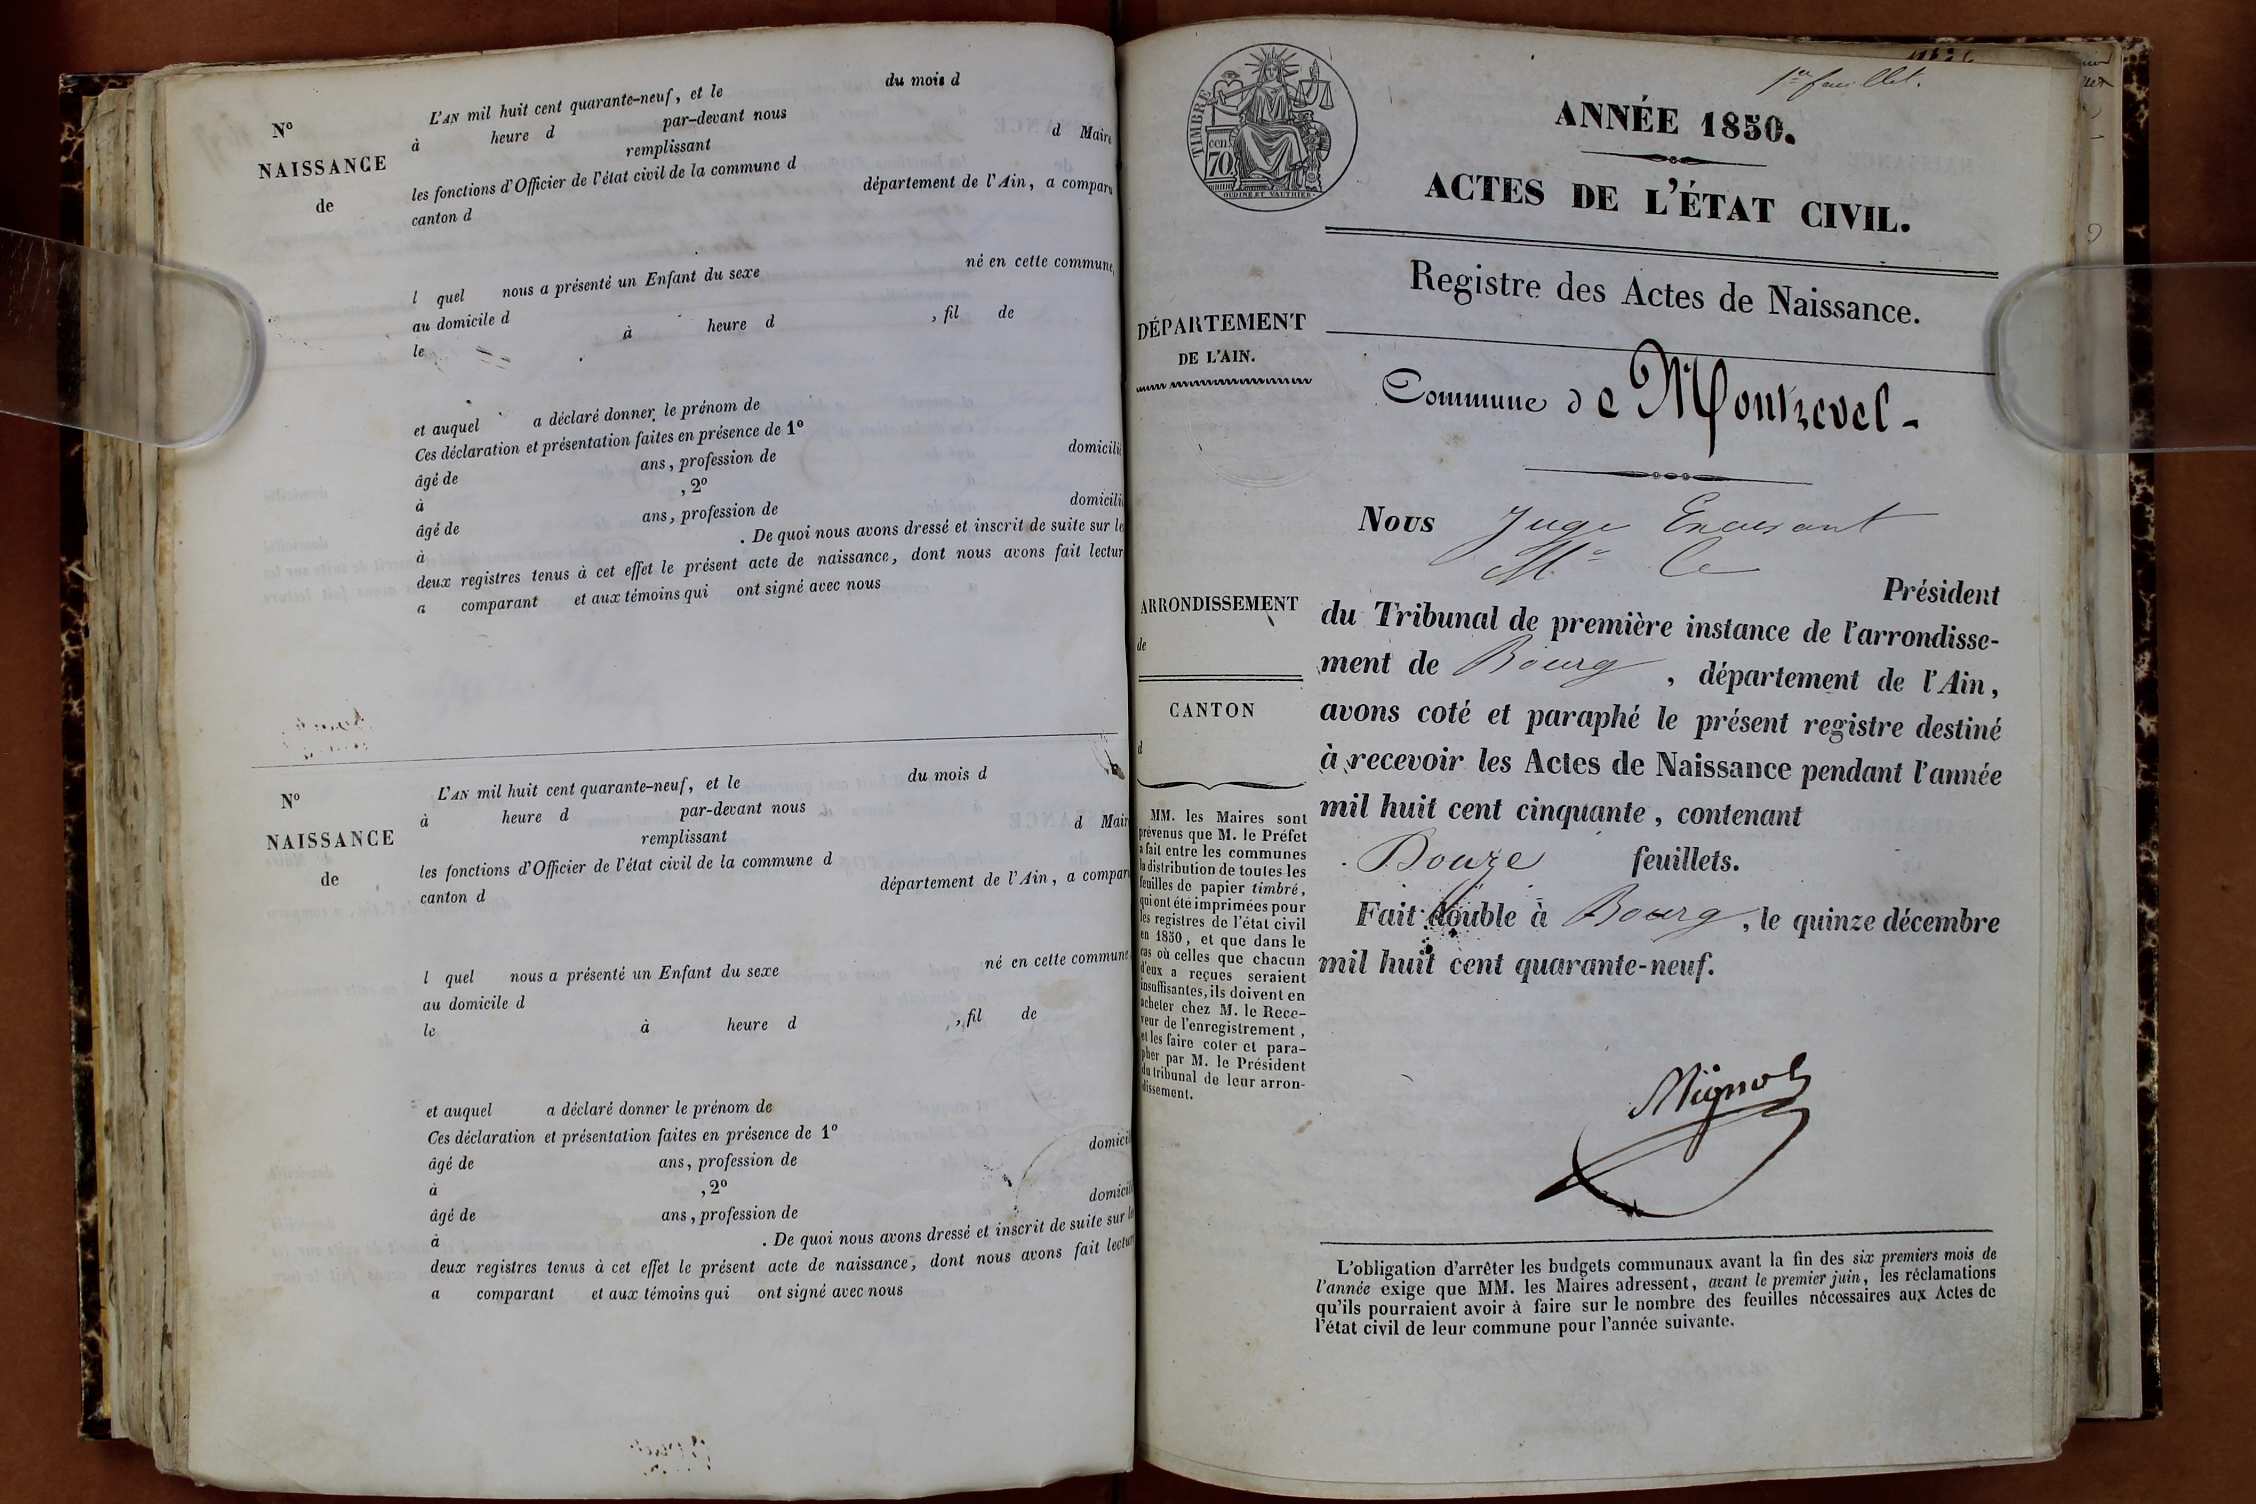 L'AN mil huit cent quarante-neuf, et le du mois d
Nº
à heure d par-devant nous
NAISSANCE
remplissant d Maire
de
les fonctions d'Officier de l'état civil de la commune d
canton d département de l'Ain, a comparu
l quel nous a présenté un Enfant du sexe né en cette commune,
au domicile d
le à heure d , fil de
et auquel a déclaré donner le prénom de
Ces déclaration et présentation faites en présence de 1º
âgé de ans, profession de domicilié
à , 2º
âgé de ans, profession de domicilié
à . De quoi nous avons dressé et inscrit de suite sur le
deux registres tenus à cet effet le présent acte de naissance, dont nous avons fait lectur
a comparant et aux témoins qui ont signé avec nous
L'AN mil huit cent quarante-neuf, et le du mois d
Nº
à heure d par-devant nous
NAISSANCE
remplissant d Mair
de
les fonctions d'Officier de l'état civil de la commune d
canton d département de l'Ain, a compar
l quel nous a présenté un Enfant du sexe né en cette commune
au domicile d
le à heure d , fil de
et auquel a déclaré donner le prénom de
Ces déclaration et présentation faites en présence de 1º
âgé de ans, profession de domicil
à , 2º
âgé de ans, profession de domicil
à . De quoi nous avons dressé et inscrit de suite sur le
deux registres tenus à cet effet le présent acte de naissance, dont nous avons fait lectur
a comparant et aux témoins qui ont signé avec nous
1er feuillet.
TIMBRE
cen. 70
OUDINÉ ET VAUTHIER
ANNÉE 1850.
ACTES DE L'ÉTAT CIVIL.
Registre des Actes de Naissance.
DÉPARTEMENT
DE L'AIN.
Commune de Montrevel -
ARRONDISSEMENT
de
CANTON
d
MM. les Maires sont
prévenus que M. le Préfet
a fait entre les communes
la distribution de toutes les
feuilles de papier timbré,
qui ont été imprimées pour
les registres de l'état civil
en 1850, et que dans le
cas où celles que chacun
d'eux a reçues seraient
insuffisantes, ils doivent en
acheter chez M. le Rece-
veur de l'enregistrement,
et les faire coter et para-
pher par M. le Président
du tribunal de leur arron-
dissement.
Nous Juge
Mr Le
Président
du Tribunal de première instance de l'arrondisse-
ment de Bourg , département de l'Ain,
avons coté et paraphé le présent registre destiné
à recevoir les Actes de Naissance pendant l'année
mil huit cent cinquante, contenant
Douze feuillets.
Fait double à Bourg , le quinze décembre
mil huit cent quarante-neuf.
Mignot
L'obligation d'arrêter les budgets communaux avant la fin des six premiers mois de
l'année exige que MM. les Maires adressent, avant le premier juin, les réclamations
qu'ils pourraient avoir à faire sur le nombre des feuilles nécessaires aux Actes de
l'état civil de leur commune pour l'année suivante.